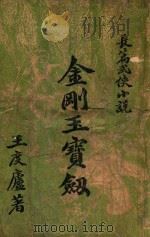 長篇武俠小說
金剛玉寶劍
王度廬著